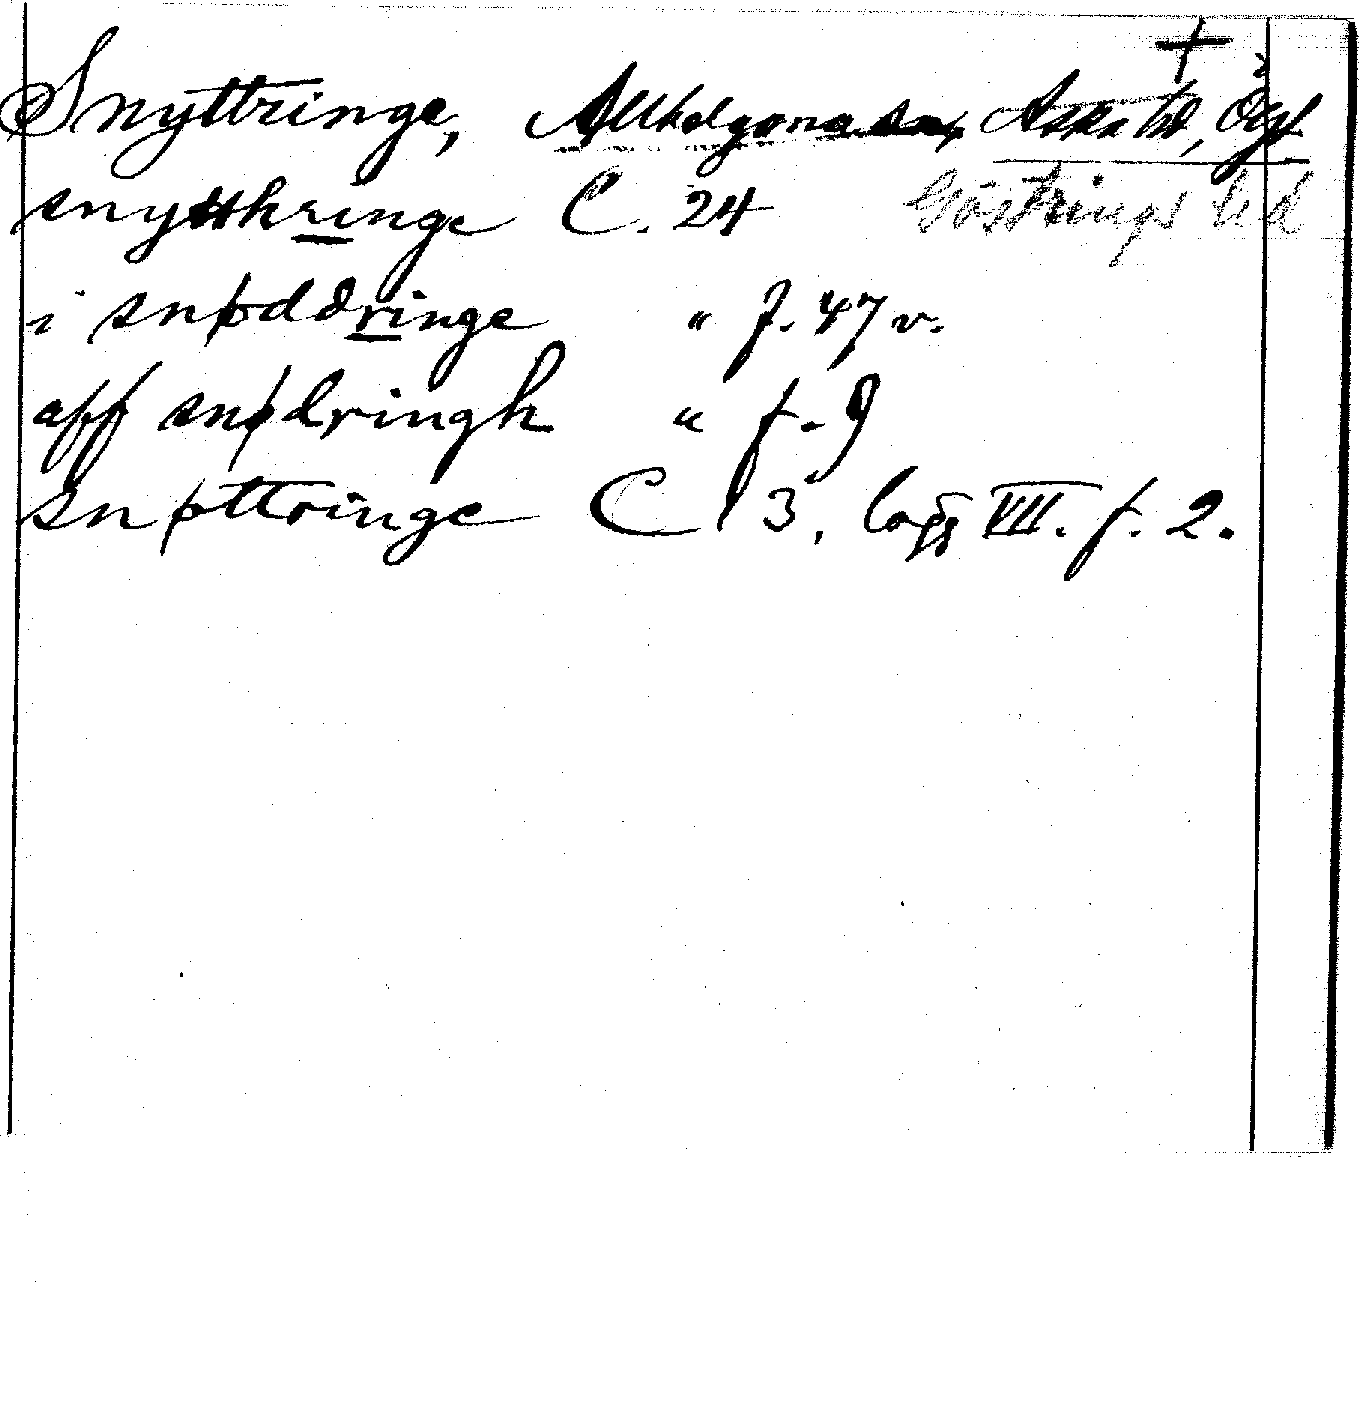 †
Snyttringe, Allhelgona sn, Aska hd, Ögl
snytthringe C. 24 Göstrings hd
i snøddringe " f. 47 v.
aff snødringh " f. 9
snøttringe C 13, lägg VII. f. 2.